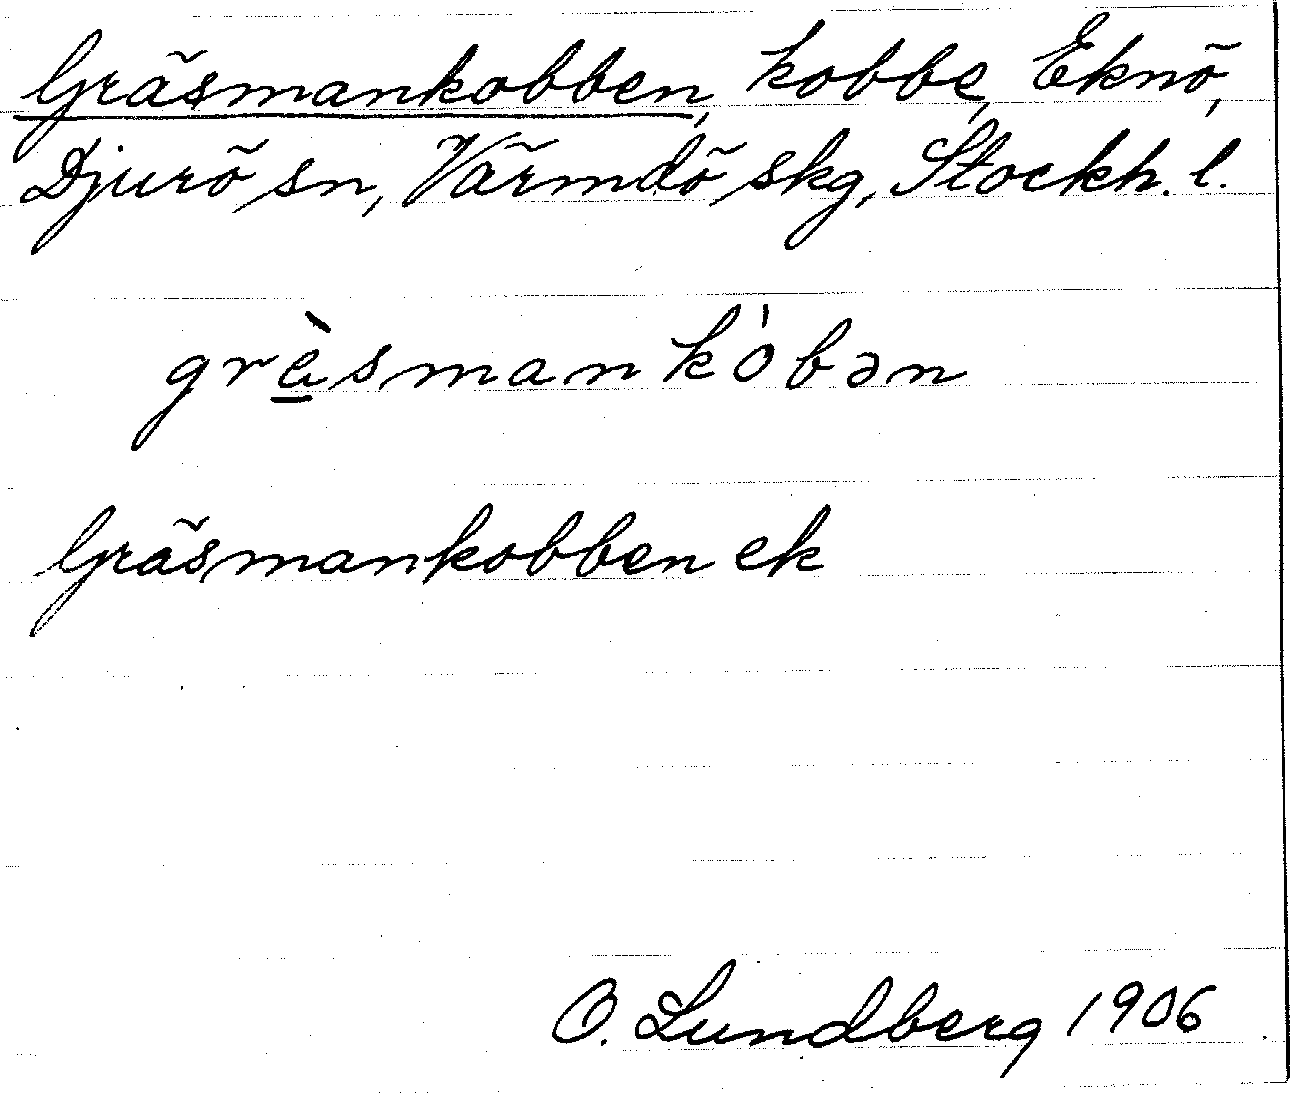 Gräsmankobben, kobbe, Eknö,
Djurö sn, Värmdö skg, Stockh. l.
grèsmankòbən
Gräsmankobben ek
O. Lundberg 1906